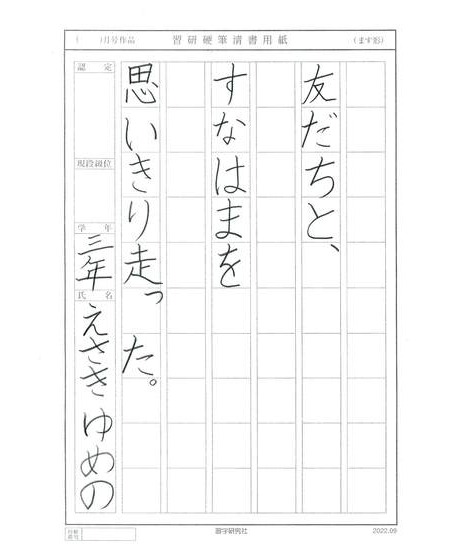 ( )月号作品 習研硬筆清書用紙 (ます形)
友だちと、
すなはまを
思いきり走った。
認定
現段級位
学年
三年
氏名
えさき ゆめの
習字研究社
2022.09